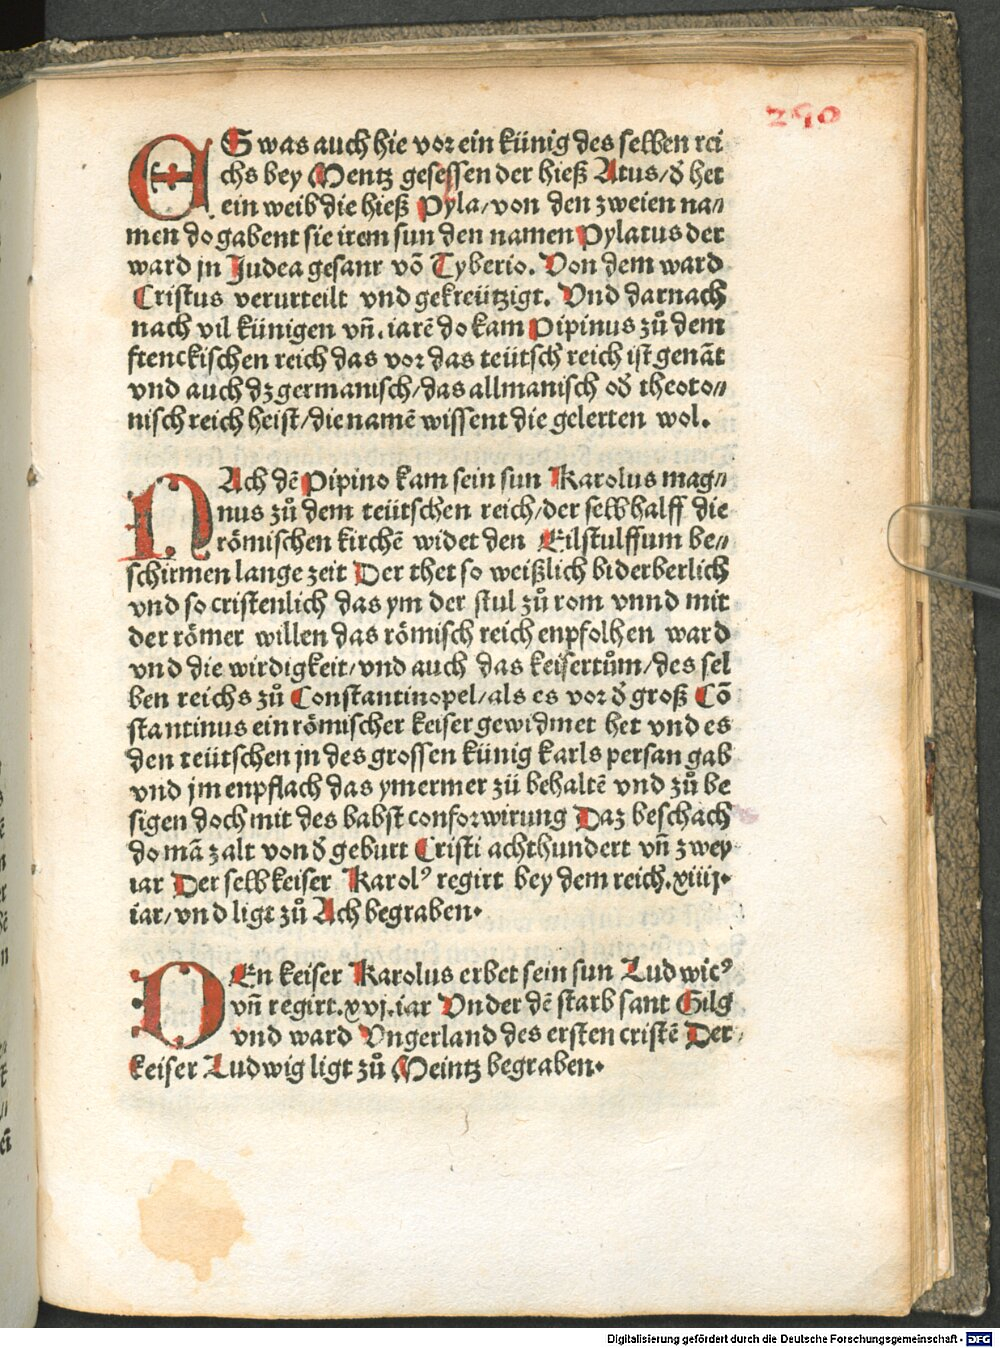 290
ES was auch hie vor ein künig des selben rei
chs bey Mentz gesessen der hieß Atus/d̕ het
ein weib die hieß Pyla/von den zweien na//
men do gabent sie irem sun den namen Pylatus der
ward jn Judea gesant võ Tyberio. Von dem ward
Cristus verurteilt vnd gekreützigt. Vnd darnach
nach vil künigen vñ.iarẽ do kam Pipinus zů dem
frenckischen reich das vor das teütsch reich ist genãt
vnd auch dz germanisch/das allmanisch od̕ theoto//
nisch reich heist/die namẽ wissent die gelerten wol.
NAch dẽ Pipino kam sein sun Karolus mag//
nus zů dem teütschen reich/der selb halff die
römischen kirchẽ widet den Eilstulffum be//
schirmen lange zeit Der thet so weißlich biderberlich
vnd so cristenlich das ym der stul zů rom vnnd mit
der römer willen das römisch reich enpfolhen ward
vnd die wirdigkeit/vnd auch das keisertům/des sel
ben reichs zů Constantinopel/als es vor d̕ groß Cõ
stantinus ein römischer keiser gewidmet het vnd es
den teütschen jn des grossen künig karls persan gab
vnd jm enpflach das ymermer zü behaltẽ vnd zů be
sigen doch mit des babst conforwirung Daz beschach
do mã zalt von d̕ geburt Cristi achthundert vñ zwey
iar Der selb keiser Karolꝰ regirt bey dem reich.xiiij.
iar/vnd ligt zů Ach begraben.
DEn keiser Karolus erbet sein sun Ludwicꝰ
vñ regirt.xvj.iar Vnder dẽ starb sant Gilg
vnd ward Vngerland des ersten cristẽ Der
keiser Ludwig ligt zů Meintz begraben.
Digitalisierung gefördert durch die Deutsche Forschungsgemeinschaft - DFG